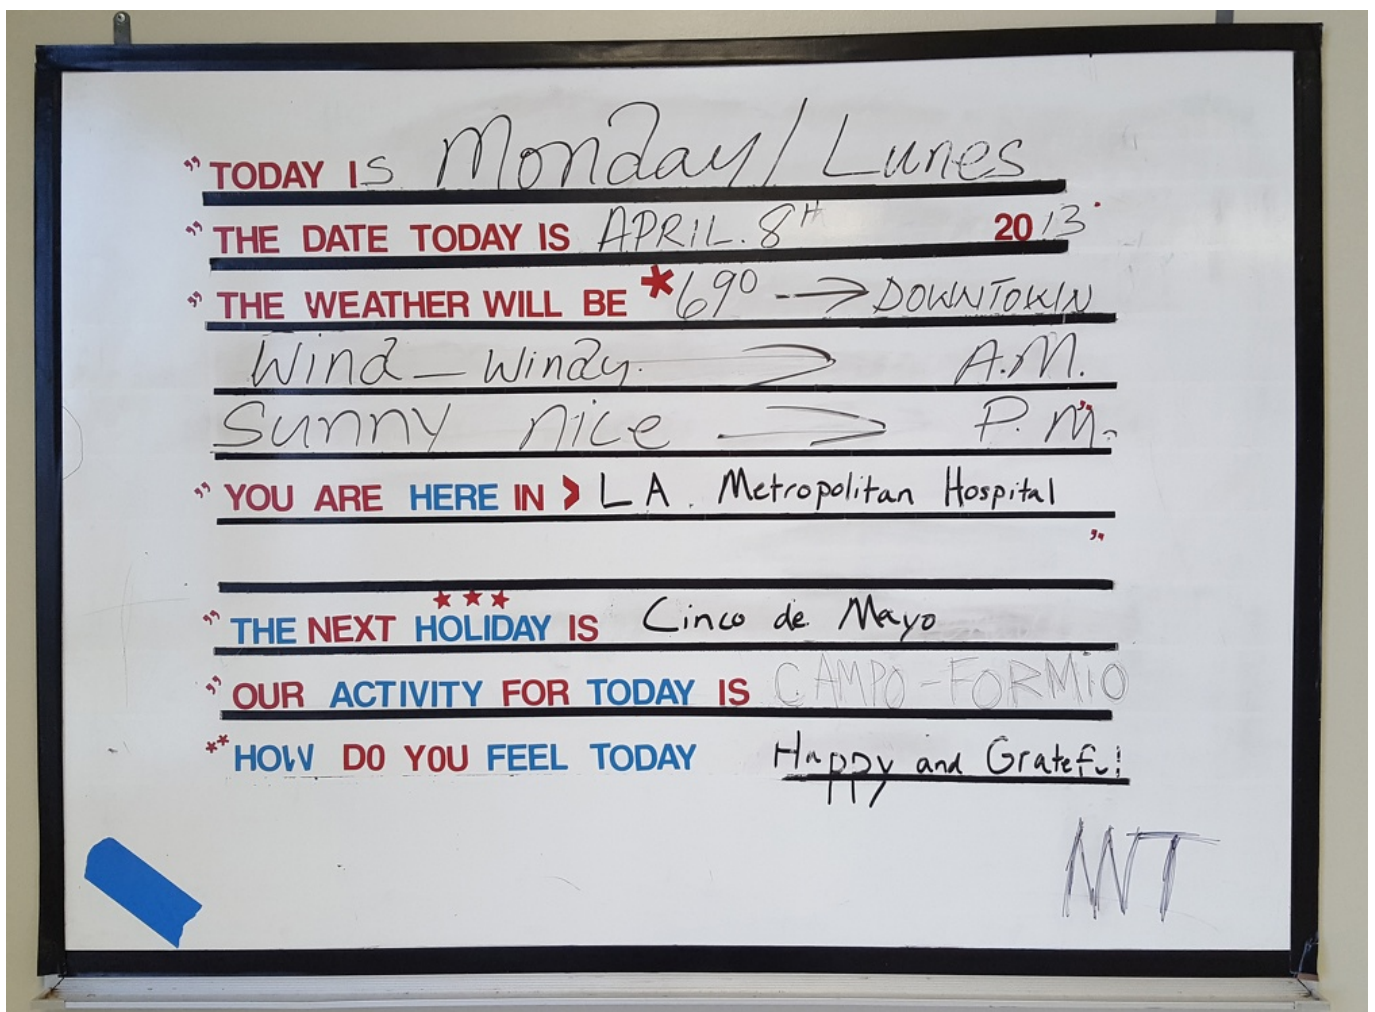 ” TODAY IS Monday / Lunes
” THE DATE TODAY IS APRIL. 8TH 2013
” THE WEATHER WILL BE *69° --→ DOWNTOWN
Wind - windy. → A.M.
Sunny nice → P.M.
” YOU ARE HERE IN > L A. Metropolitan Hospital
”
” THE NEXT HOLIDAY IS Cinco de Mayo
” OUR ACTIVITY FOR TODAY IS CAMPO-FORMIO
** HOW DO YOU FEEL TODAY Happy and Grateful